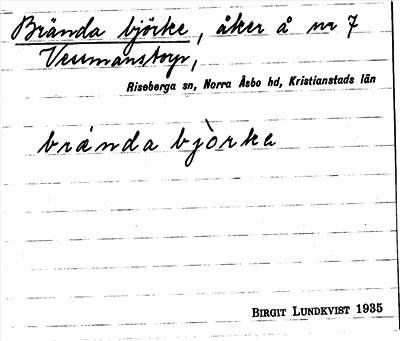 Brända björke, åker å nr 7
Veumanstorp,
Riseberga sn, Norra Åsbo hd, Kristianstads län
bránda bjòrka
BIRGIT LUNDKVIST 1935